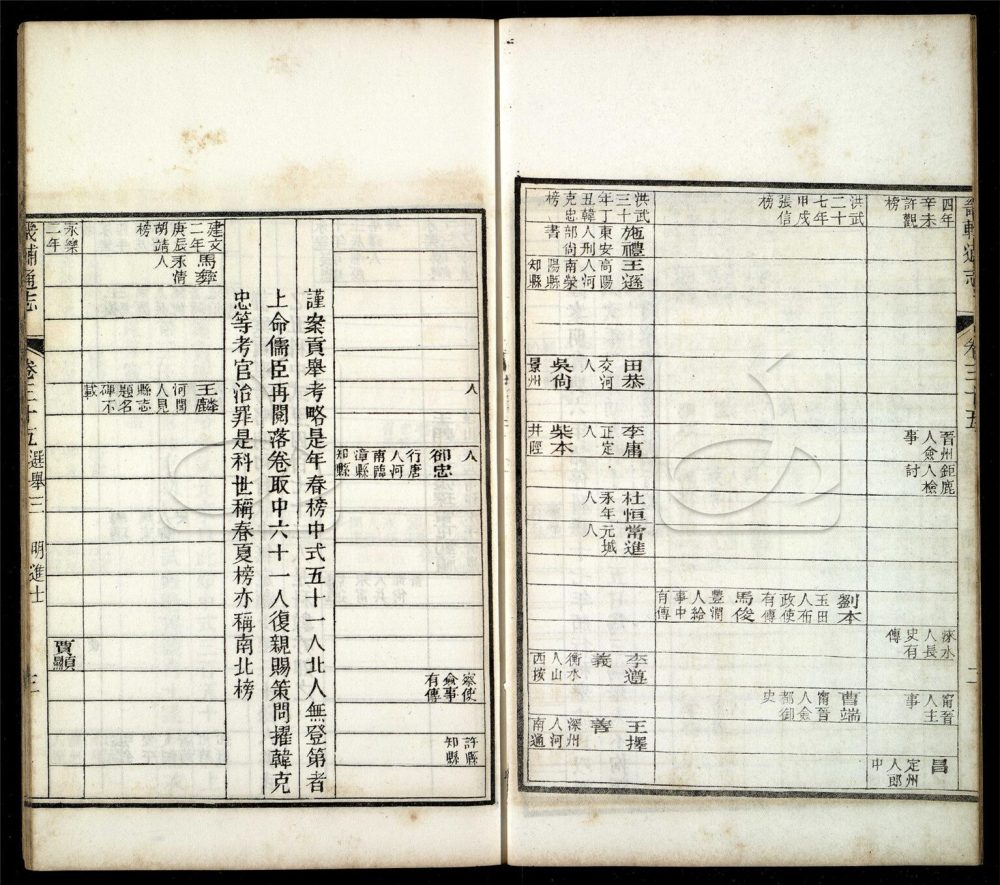 畿輔通志
卷三十五
二
四年
辛未
許觀
榜
晉州
人僉
事
鉅鹿
人檢
討
涿水
人長
史有
傳
甯晉
人主
事
昌
定州
人郎
中
洪武
二十
七年
甲戌
張信
榜
劉本
玉田
人布
政使
有傳
馬俊
豐潤
人給
事中
有傳
曹端
甯晉
人僉
都御
史
洪武
三十
年丁
丑韓
克忠
榜
施禮
東安
人刑
部尚
書
王遜
高陽
人河
南滎
陽縣
知縣
田恭
交河
人
吳尙
景州
李庸
正定
人
柴本
井陘
杜恒
永年
人
常進
元城
人
李遵
義
衡水
人山
西按
王擇
善
深州
人河
南通
人
人
御忠
行唐
人河
南臨
漳縣
知縣
察使
僉事
有傳
許縣
知縣
謹案貢舉考略是年春榜中式五十一人北人無登第者
上命儒臣再閱落卷取中六十一人復親賜策問擢韓克
忠等考官治罪是科世稱春夏榜亦稱南北榜
建文
二年
庚辰
胡靖
榜
馬彝
永清
人
王麟
河間
人見
縣志
題名
碑不
載
永樂
二年
賈顯
畿輔通志
卷三十五
選舉三
明進士
三